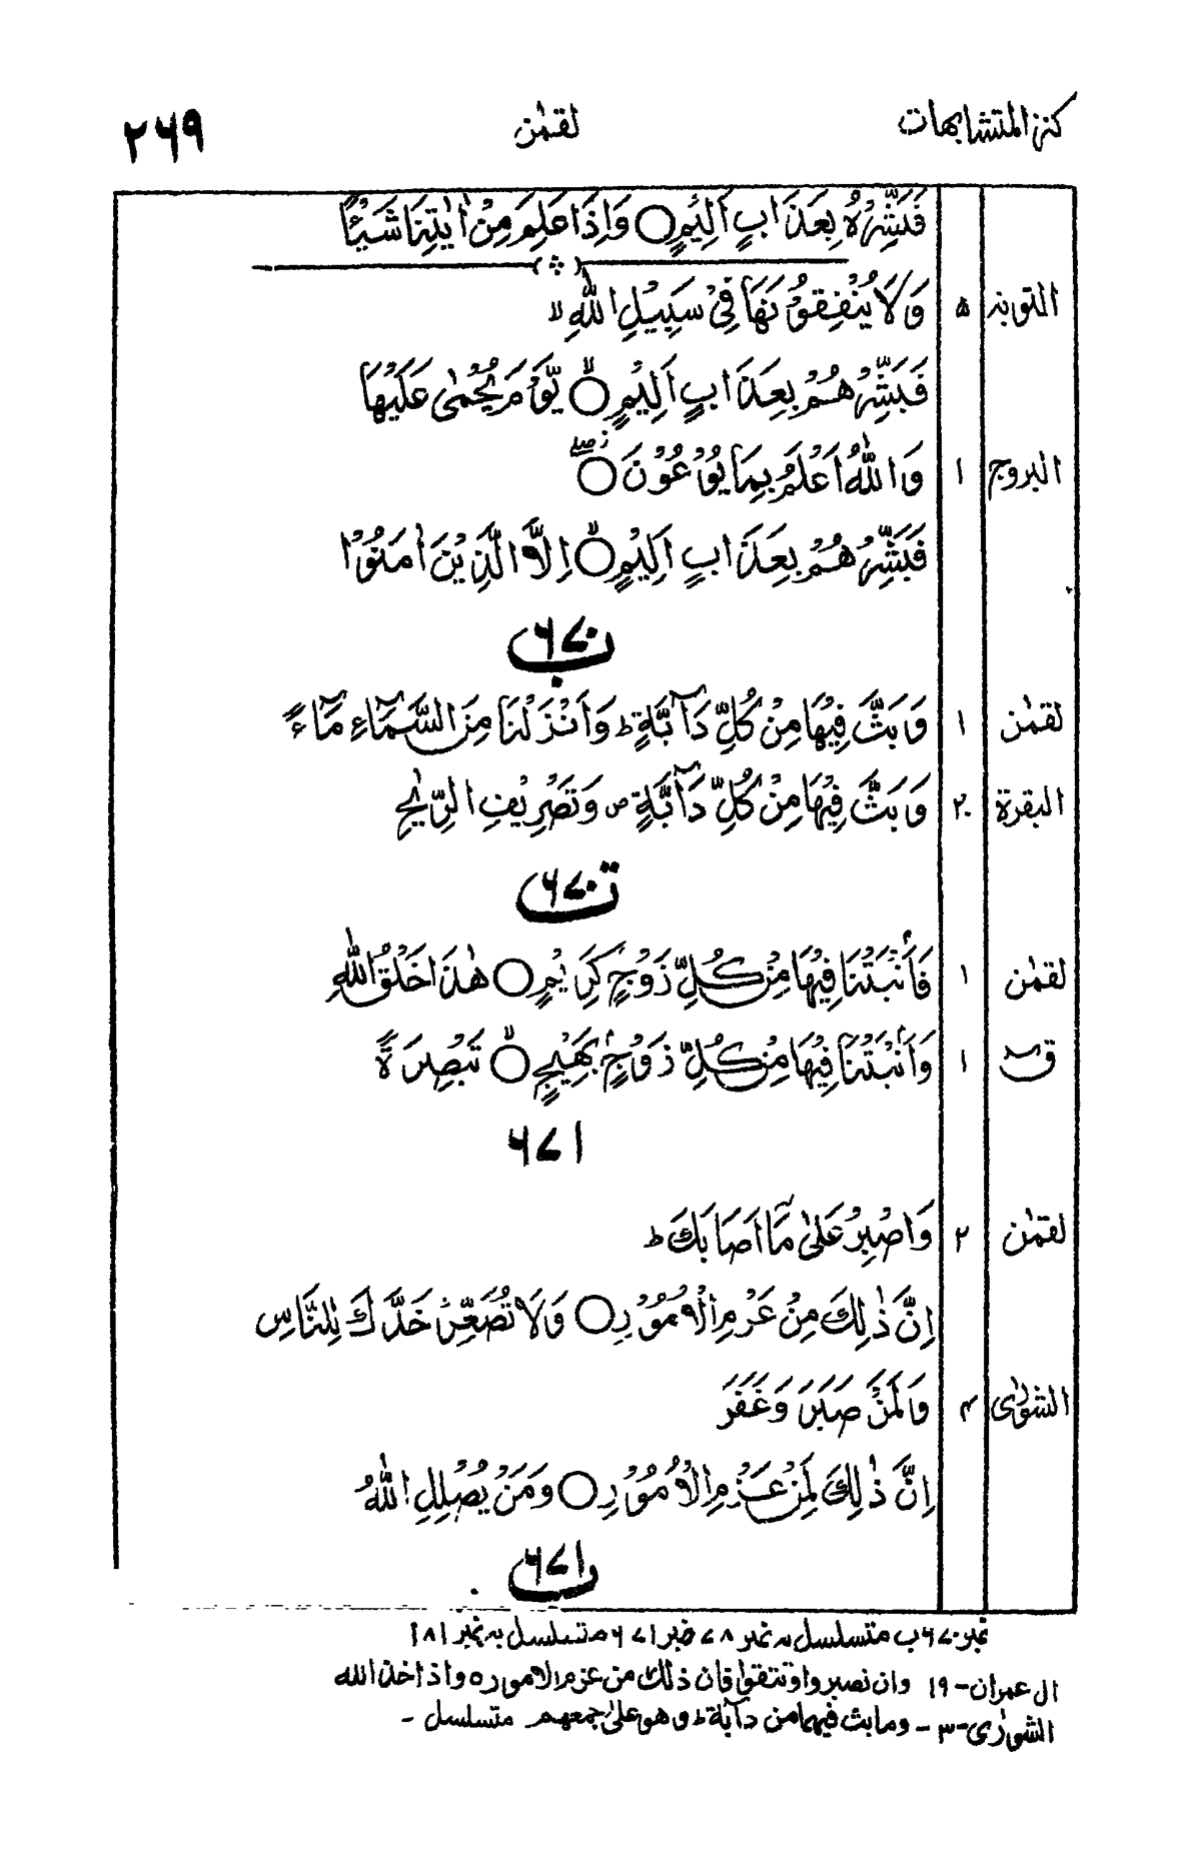 كنز المتشابهات لقمٰن ۲۶۹
فَبَشِّرْهُ بِعَذَابٍ اَلِيْمٍ ○ وَاِذَا عَلِمَ مِنْ اٰيٰتِنَا شَيْئًا
التوبة ۵ وَلَا يُنْفِقُوْنَهَا فِيْ سَبِيْلِ اللّٰهِ ۙ
فَبَشِّرْهُمْ بِعَذَابٍ اَلِيْمٍ ○ۙ يَّوْمَ يُحْمٰى عَلَيْهَا
البروج ۱ وَاللّٰهُ اَعْلَمُ بِمَا يُوْعُوْنَ ○ۖ
فَبَشِّرْهُمْ بِعَذَابٍ اَلِيْمٍ ○ۙ اِلَّا الَّذِيْنَ اٰمَنُوْا
۶۷۰ب
لقمٰن ۱ وَبَثَّ فِيْهَا مِنْ كُلِّ دَآبَّةٍ ؕ وَاَنْزَلْنَا مِنَ السَّمَآءِ مَآءً
البقرة ۲۰ وَبَثَّ فِيْهَا مِنْ كُلِّ دَآبَّةٍ ۪ وَتَصْرِيْفِ الرِّيٰحِ
۶۷۰ت
لقمٰن ۱ فَاَنْۢبَتْنَا فِيْهَا مِنْ كُلِّ زَوْجٍ كَرِيْمٍ ○ هٰذَا خَلْقُ اللّٰهِ
قٓ ۱ وَاَنْۢبَتْنَا فِيْهَا مِنْ كُلِّ زَوْجٍۭ بَهِيْجٍ ○ۙ تَبْصِرَةً
۶۷۱
لقمٰن ۲ وَاصْبِرْ عَلٰى مَآ اَصَابَكَ ؕ
اِنَّ ذٰلِكَ مِنْ عَزْمِ الْاُمُوْرِ ○ وَلَا تُصَعِّرْ خَدَّكَ لِلنَّاسِ
الشورٰى ۴ وَلَمَنْ صَبَرَ وَغَفَرَ
اِنَّ ذٰلِكَ لَمِنْ عَزْمِ الْاُمُوْرِ ○ وَمَنْ يُّضْلِلِ اللّٰهُ
۶۷۱ب
نمبر ۶۷۰ب متسلسل به نمبر ۷۸ نمبر ۶۷۱ متسلسل به نمبر ۱۸۱
ال عمران-۱۹ وان تصبروا وتتقوا فان ذلك من عزم الامور ه واذ اخذ الله
الشورٰى-۳- وما بث فيهما من دآبة ؕ وهو على جمعهم متسلسل-